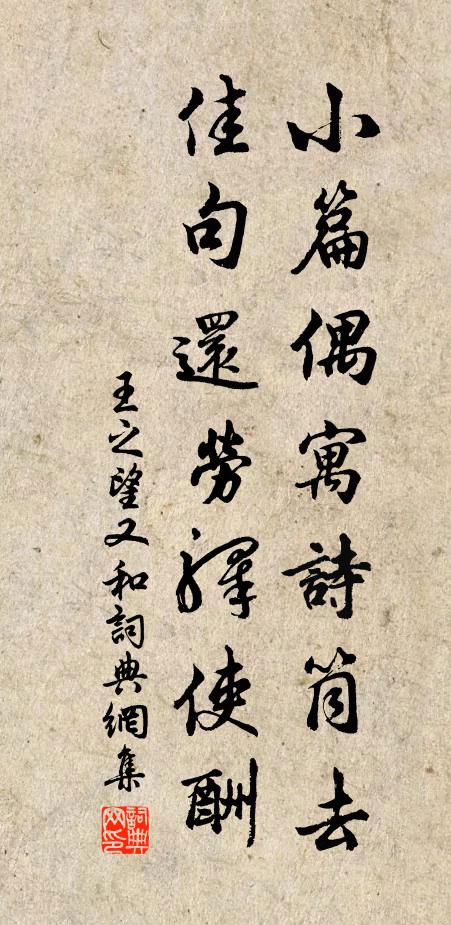 小篇偶寓詩筒去
佳句還勞驛使酬
王之望又和詞典網集
詞典網印